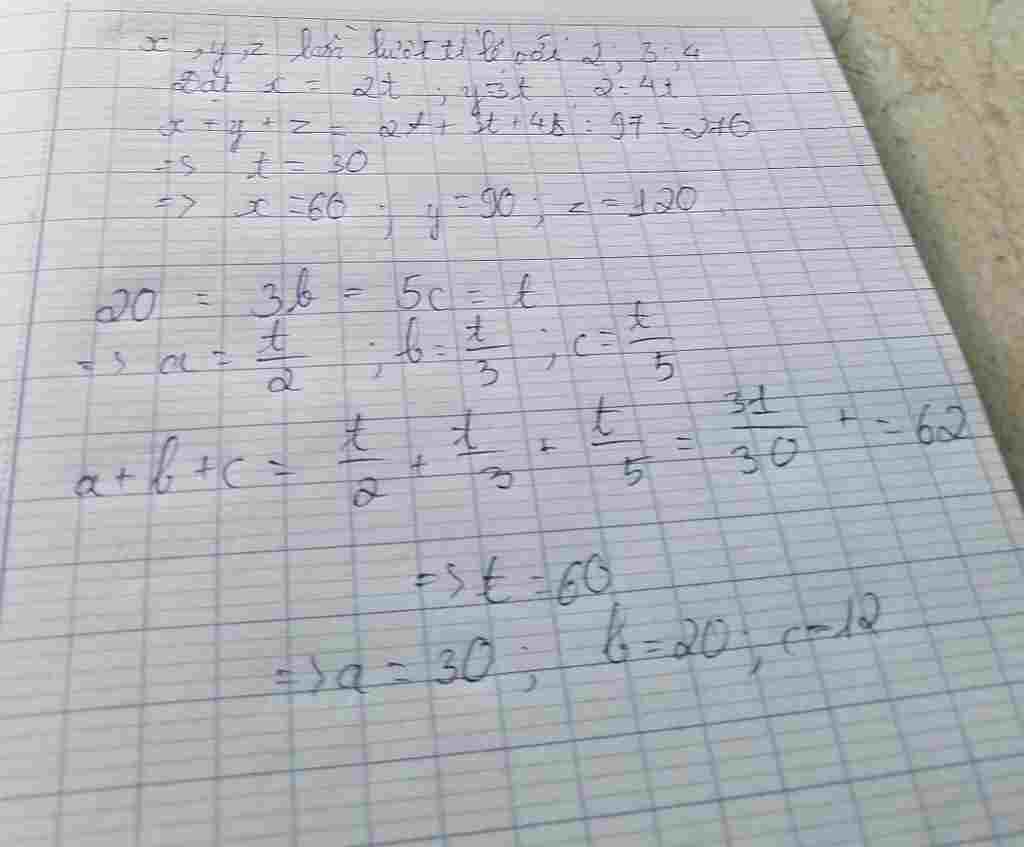 x, y, z lần lượt tỉ lệ với 2; 3; 4
Đặt x = 2t; y=3t 2=4t
x+y+z = 2t+3t+4t = 97 = 270
=> t = 30
=> x=60; y=90; z=120
20 = 3b = 5c = t
=> a = t/2; b = t/3; c = t/5
a+b+c = t/2 + t/3 + t/5 = 31/30 t = 62
=> t = 60
=> a = 30; b=20; c=12